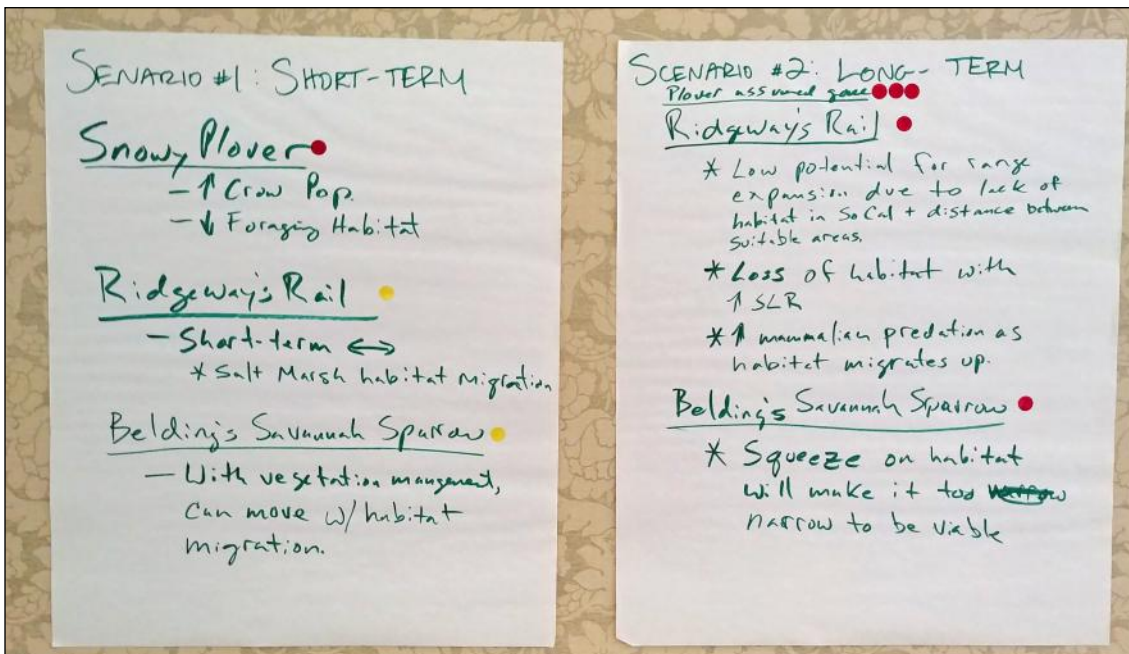 SENARIO #1: SHORT-TERM
Snowy Plover
- ↑ Crow Pop.
- ↓ Foraging Habitat
Ridgeway's Rail
- Short-term ↔
* Salt Marsh habitat migration
Belding's Savannah Sparrow
- With vegetation mangement,
can move w/ habitat
migration.
SCENARIO #2: LONG-TERM
Plover assumed gone
Ridgeway's Rail
* Low potential for range
expansion due to lack of
habitat in SoCal + distance between
suitable areas.
* Loss of habitat with
↑ SLR
* ↑ mammalian predation as
habitat migrates up.
Belding's Savannah Sparrow
* Squeeze on habitat
will make it too
narrow to be viable